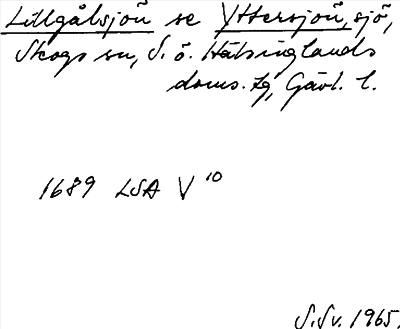 Lillgålsjön se Yttersjön, sjö,
Skogs sn, S. ö. Hälsinglands
doms. tg, Gävl. l.
1689 LSA V 10
S. Sv. 1965.